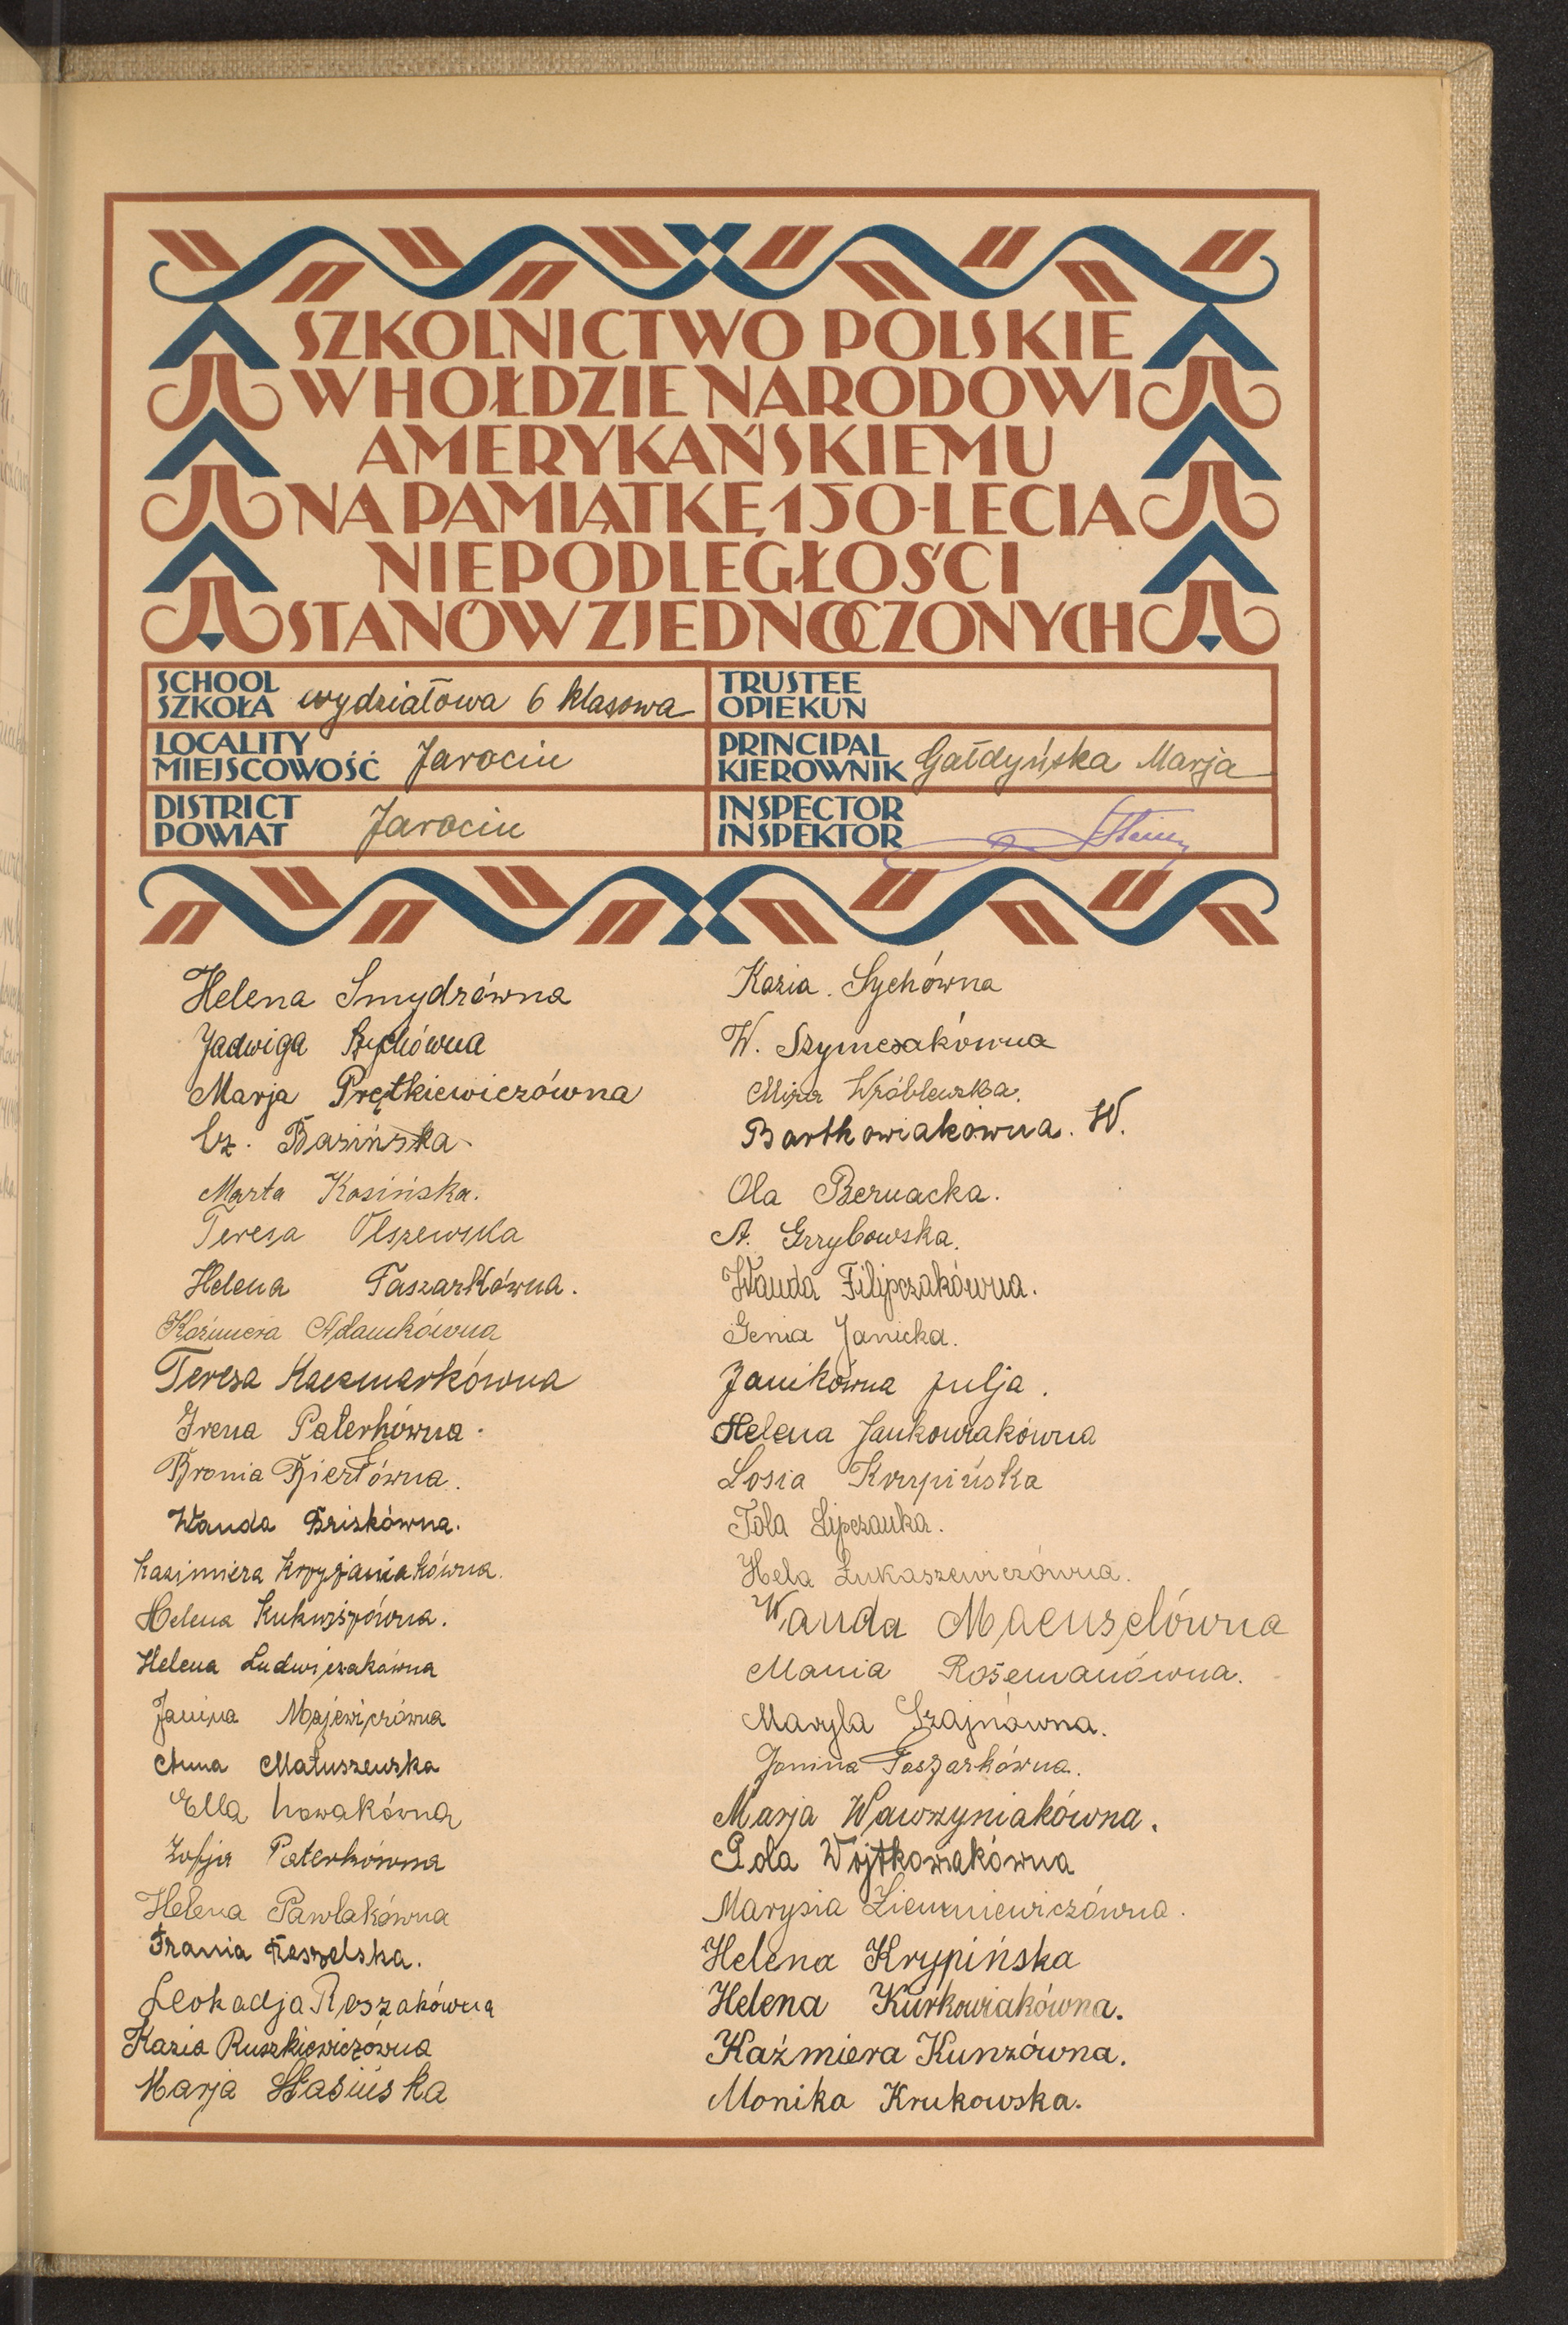 SZKOLNICTWO POLSKIE
W HOŁDZIE NARODOWI
AMERYKAŃSKIEMU
NA PAMIĄTKĘ 150-LECIA
NIEPODLEGŁOŚCI
STANÓW ZJEDNOCZONYCH
SCHOOL
SZKOŁA wydziałowa 6 klasowa
TRUSTEE
OPIEKUN
LOCALITY
MIEJSCOWOŚĆ Jarocin
PRINCIPAL
KIEROWNIK Gałdyńska Marja
DISTRICT
POWIAT Jarocin
INSPECTOR
INSPEKTOR
Helena Smydrówna
Jadwiga
Marja Prętkiewiczówna
Cz. Basińska
Marta Kosińska.
Teresa Olszewska
Helena Taszarkówna.
Kaźmiera Adamkówna
Teresa Kaczmarkówna
Irena Paterkówna
Bronia Bierłówna.
Wanda Briskówna.
Kazimiera Krzyżaniakówna.
Helena
Helena Ludwiczakówna
Janina Majewiczówna
Anna Matuszewska
Ella Nowakówna
Zofja Paterkówna
Helena Pawlakówna
Frania Reszelska.
Leokadja Roszakówna
Kazia Ruszkiewiczówna
Marja Stasińska
Kazia. Sychówna
W. Szymczakówna
Mira Wróblewska.
Bartkowiakówna. W.
Ola Bernacka.
A. Grzybowska.
Wanda Filipczakówna.
Genia Janicka.
Janikówna Julja.
Helena Jankowiakówna
Zosia Krzypińska
Tola Lipczanka.
Hela Łukaszewiczówna.
Wanda
Mania Rosemanówna.
Maryla Szajnówna.
Janina Taszarkówna.
Marja Wawrzyniakówna.
Pola Wojtkowiakówna
Marysia Ziemniewiczówna.
Helena Krypińska
Helena Kurkowiakówna.
Kaźmiera Kunzówna.
Monika Krukowska.